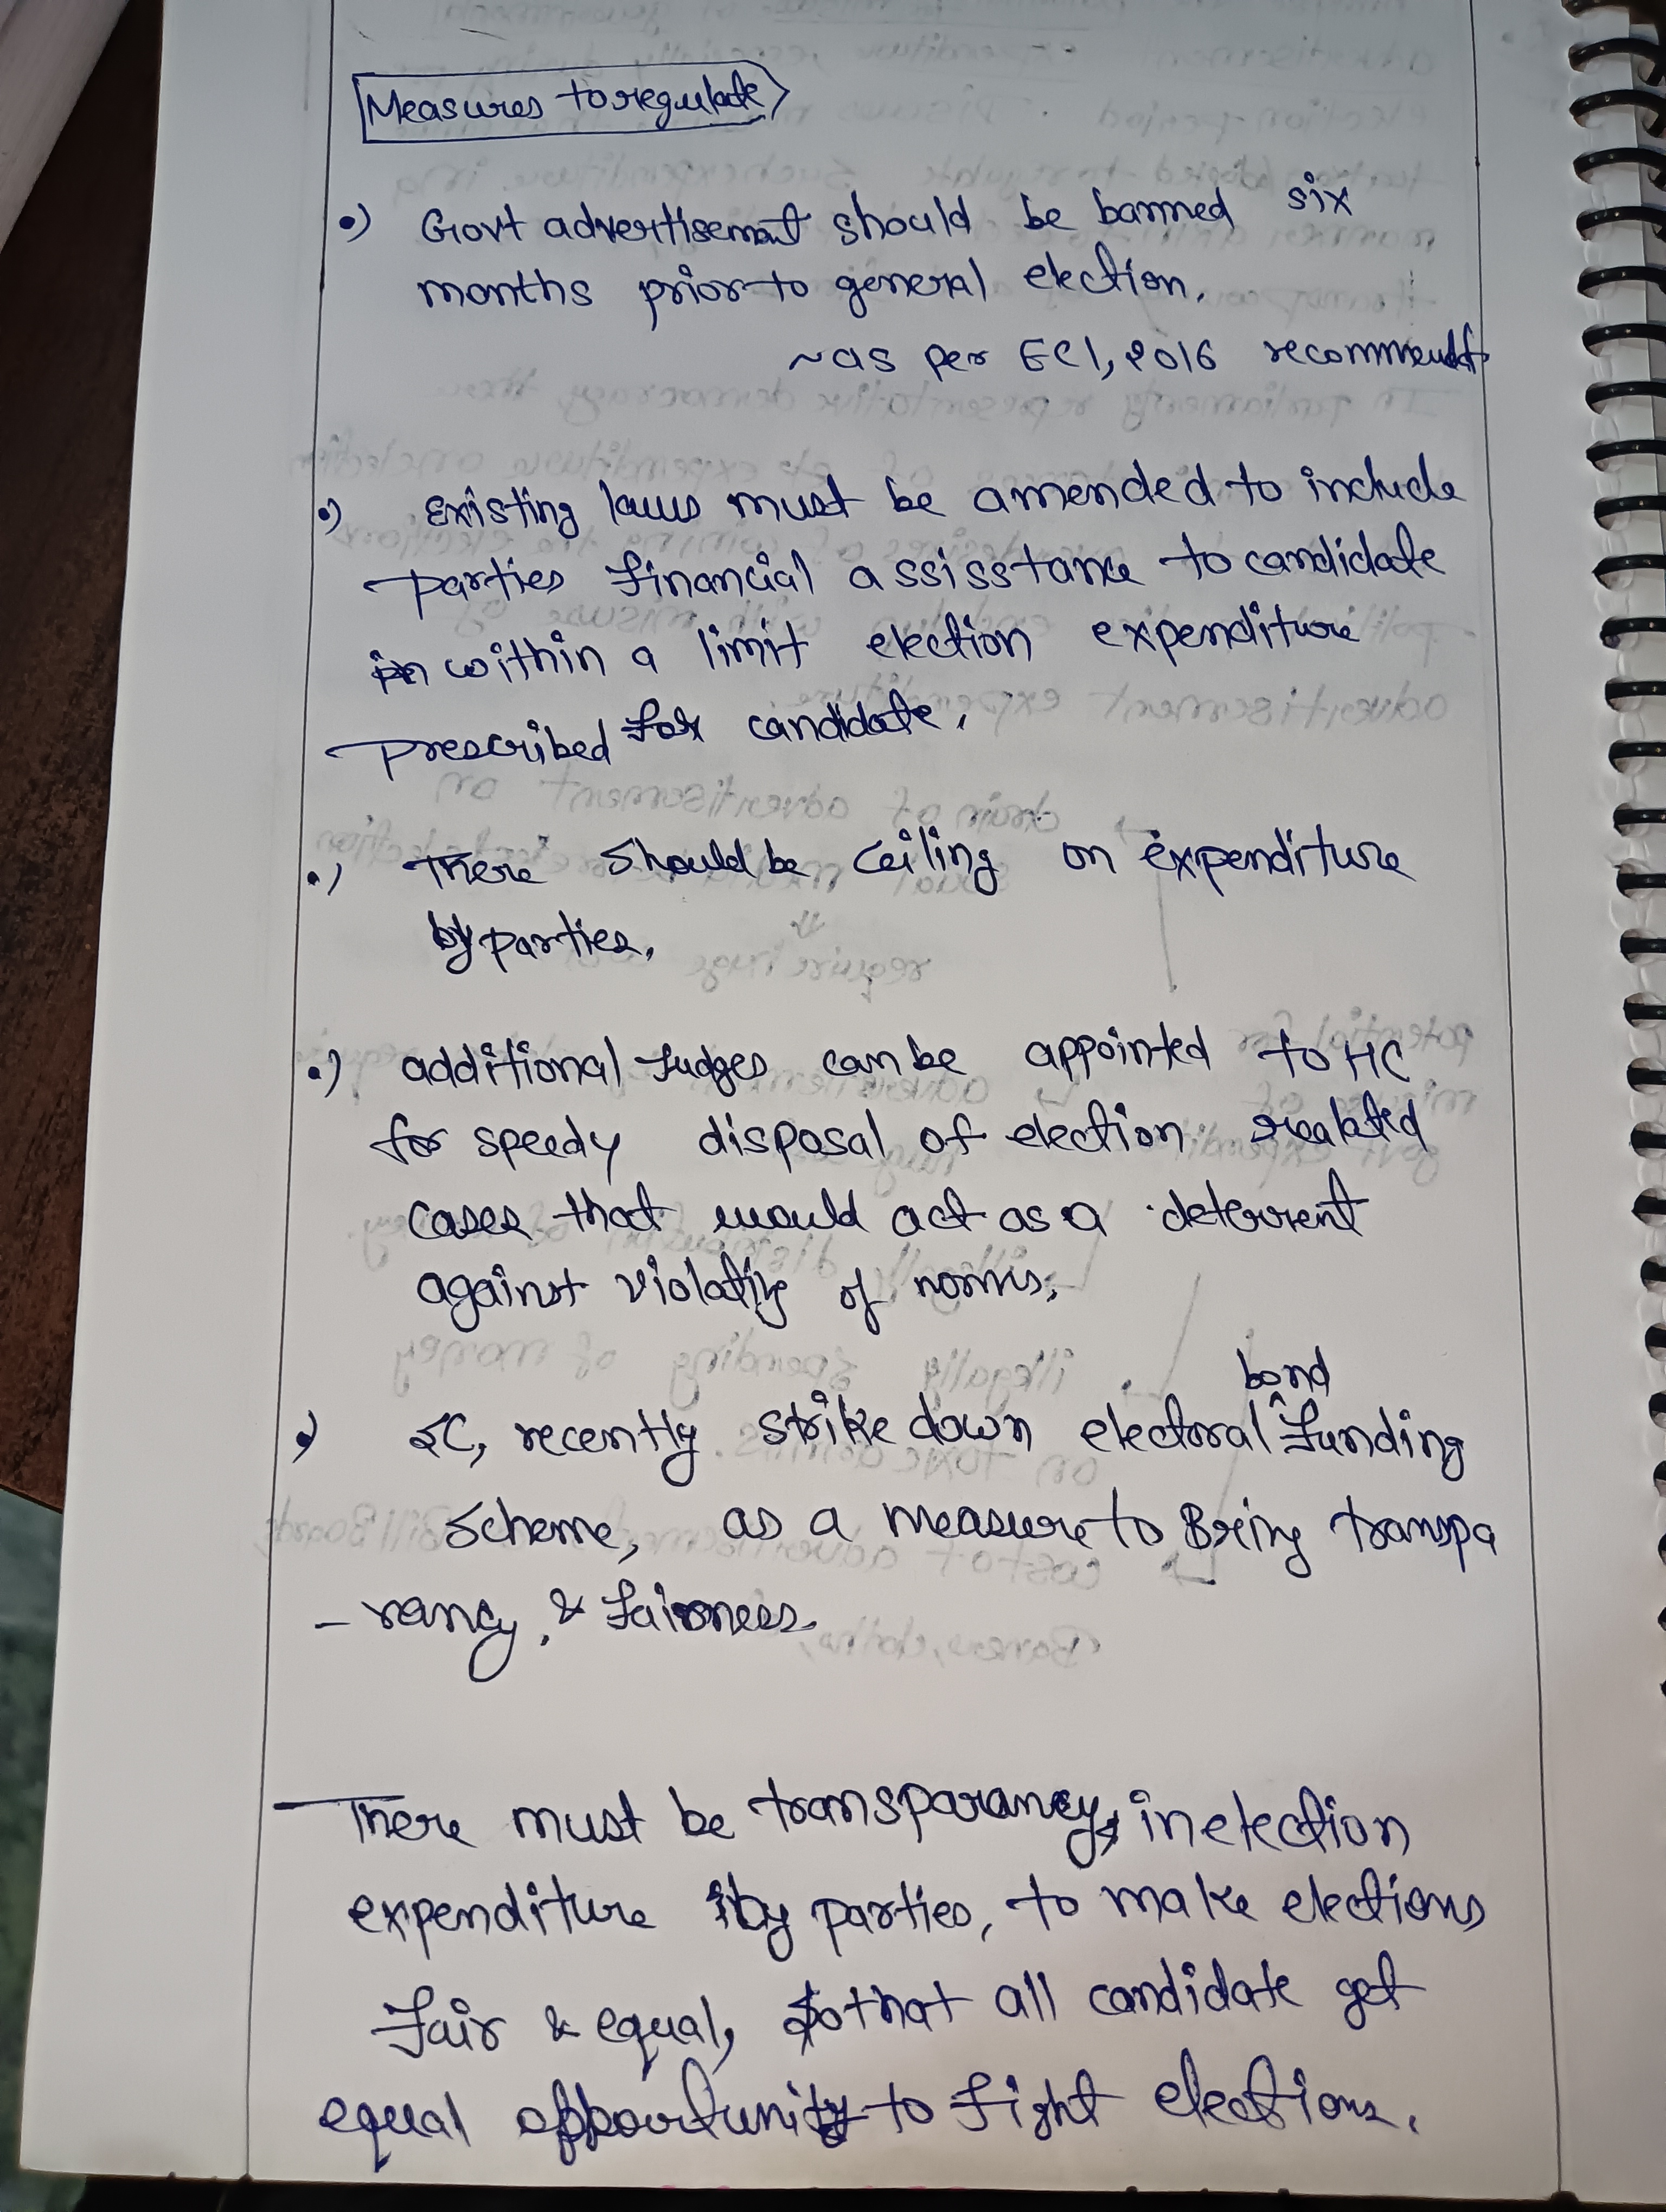 Measures to regulate
•) Govt advertisement should be banned six
months prior to general election.
~as per ECI, 2016 recommendt
•) Existing laws must be amended to include
parties financial assisstance to candidate
within a limit election expenditure
prescribed for candidate.
•) There should be ceiling on expenditure
by parties.
•) additional Judges can be appointed to HC
for speedy disposal of election realated
cases that would act as a deterrent
against violating of norms.
•) SC, recently strike down electoral bond funding
scheme, as a measure to Bring transpa
- rancy, & fairness.
There must be transparancy, in election
expenditure by parties, to make elections
fair & equal, so that all candidate get
equal opportunity to fight elections.